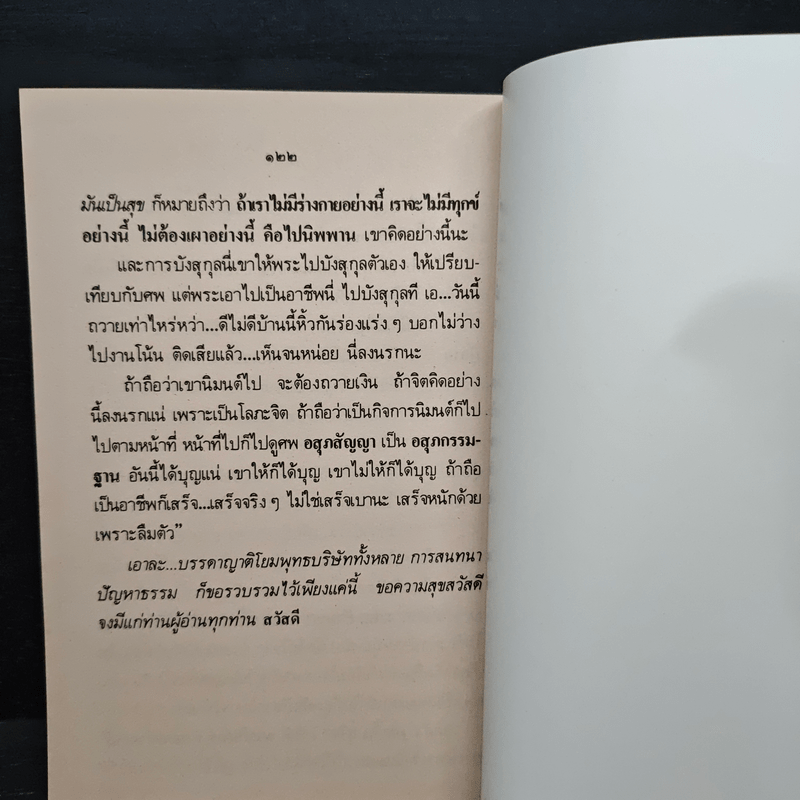 ๑๒๒
มันเป็นสุข ก็หมายถึงว่า ถ้าเราไม่มีร่างกายอย่างนี้ เราจะไม่มีทุกข์
อย่างนี้ ไม่ต้องเผาอย่างนี้ คือไปนิพพาน เขาคิดอย่างนี้นะ
และการบังสุกุลนี่เขาให้พระไปบังสุกุลตัวเอง ให้เปรียบ-
เทียบกับศพ แต่พระเอาไปเป็นอาชีพนี่ ไปบังสุกุลที เอ...วันนี้
ถวายเท่าไหร่หว่า...ดีไม่ดีบ้านนี้หิ้วกันร่องแร่ง ๆ บอกไม่ว่าง
ไปงานโน้น ติดเสียแล้ว...เห็นจนหน่อย นี่ลงนรกนะ
ถ้าถือว่าเขานิมนต์ไป จะต้องถวายเงิน ถ้าจิตคิดอย่าง
นี้ลงนรกแน่ เพราะเป็นโลภะจิต ถ้าถือว่าเป็นกิจการนิมนต์ก็ไป
ไปตามหน้าที่ หน้าที่ไปก็ไปดูศพ อสุภสัญญา เป็น อสุภกรรม-
ฐาน อันนี้ได้บุญแน่ เขาให้ก็ได้บุญ เขาไม่ให้ก็ได้บุญ ถ้าถือ
เป็นอาชีพก็เสร็จ...เสร็จจริง ๆ ไม่ใช่เสร็จเบานะ เสร็จหนักด้วย
เพราะลืมตัว”
เอาละ...บรรดาญาติโยมพุทธบริษัททั้งหลาย การสนทนา
ปัญหาธรรม ก็ขอรวบรวมไว้เพียงแค่นี้ ขอความสุขสวัสดี
จงมีแก่ท่านผู้อ่านทุกท่าน สวัสดี